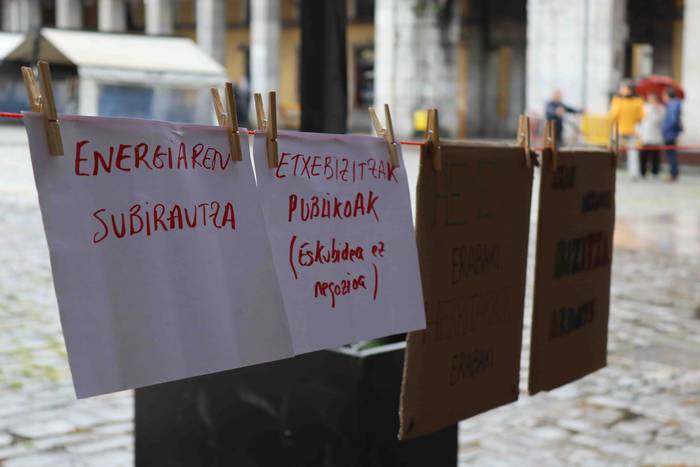 ENERGIAREN
SUBIRAUTZA
ETXEBIZITZAK
PUBLIKOAK
(Eskubidea ez
negozioa)
ERABAKI
ERABAKI
BIZITZA